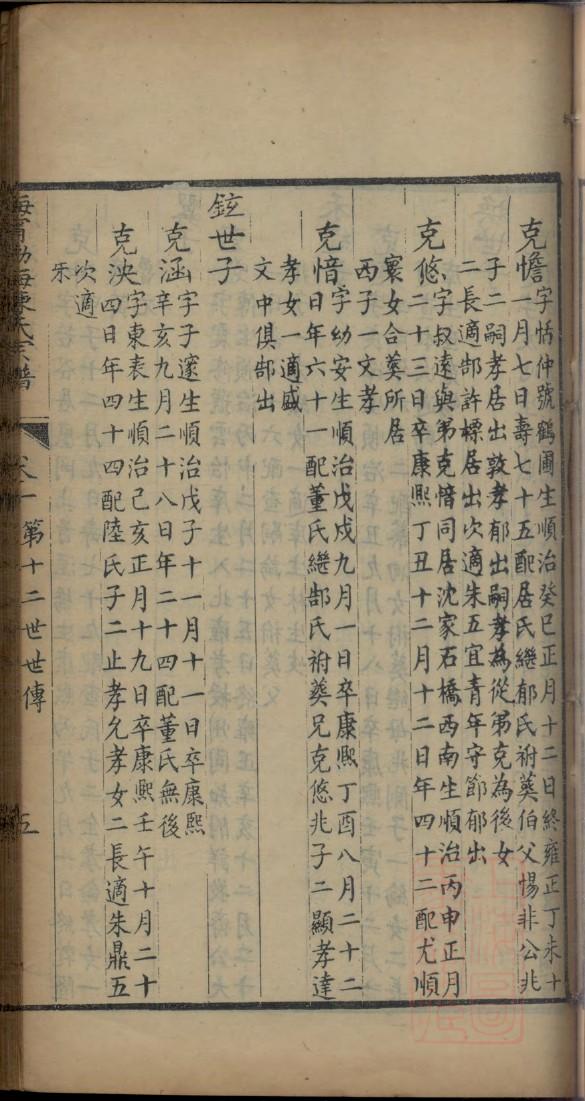 克憺字恬仲號鶴圃生順治癸巳正月十二日終雍正丁未十
一月七日壽七十五配居氏繼郁氏祔葬伯父惕非公兆
子二嗣孝居出敦孝郁出嗣孝為從弟克為後女
二長適郜許標居出次適朱五宜青年守節郁出
克悠字叔遠與弟克愔同居沈家石橋西南生順治丙申正月
二十三日卒康熙丁丑十二月十二日年四十二配尤順
寰女合葬所居
西子一文孝
克愔字幼安生順治戊戌九月一日卒康熙丁酉八月二十二
日年六十一配董氏繼郜氏祔葬兄克悠兆子二顯孝達
孝女一適盛
文中俱郜出
鉉世子
克涵字子邃生順治戊子十一月十一日卒康熙
辛亥九月二十八日年二十四配董氏無後
克泱字東表生順治己亥正月十九日卒康熙壬午十月二十
四日年四十四配陸氏子二止孝允孝女二長適朱鼎五
次適
朱
海甯渤海陳氏宗譜
第十二世世傳
五